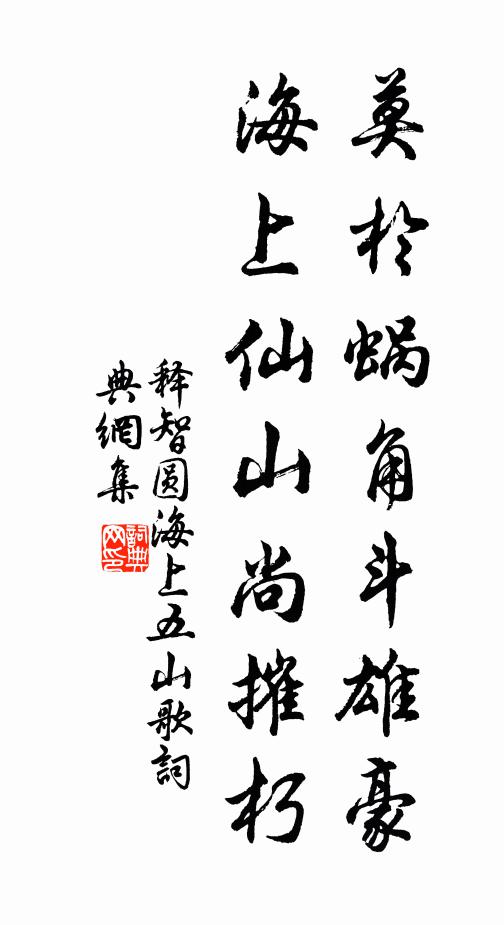 莫於蜗角斗雄豪
海上仙山尚摧朽
释智圆海上五山歌詞
典網集
詞典網印